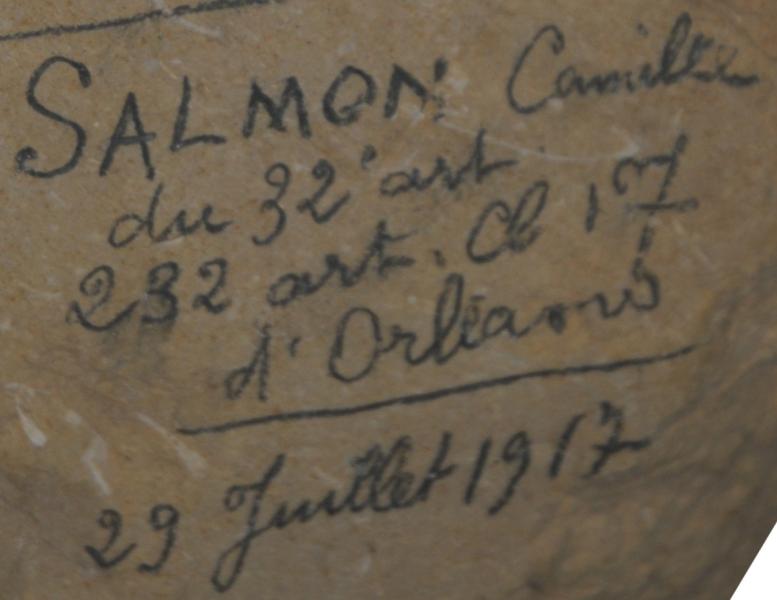 SALMON Camille
du 32e art.
232 art. Cl 17
d'Orléans
29 Juillet 1917